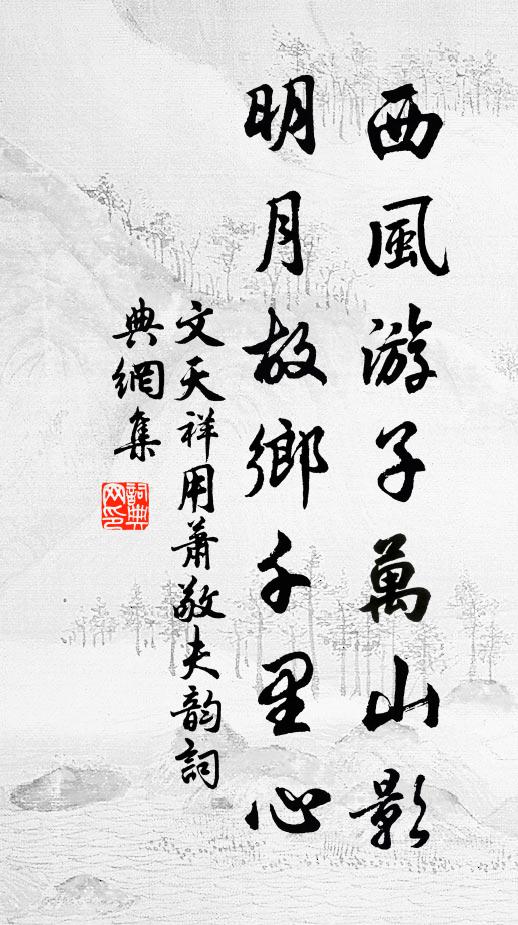 西風游子萬山影
明月故鄉千里心
文天祥用蕭敬夫韵詞
典網集
詞典网印